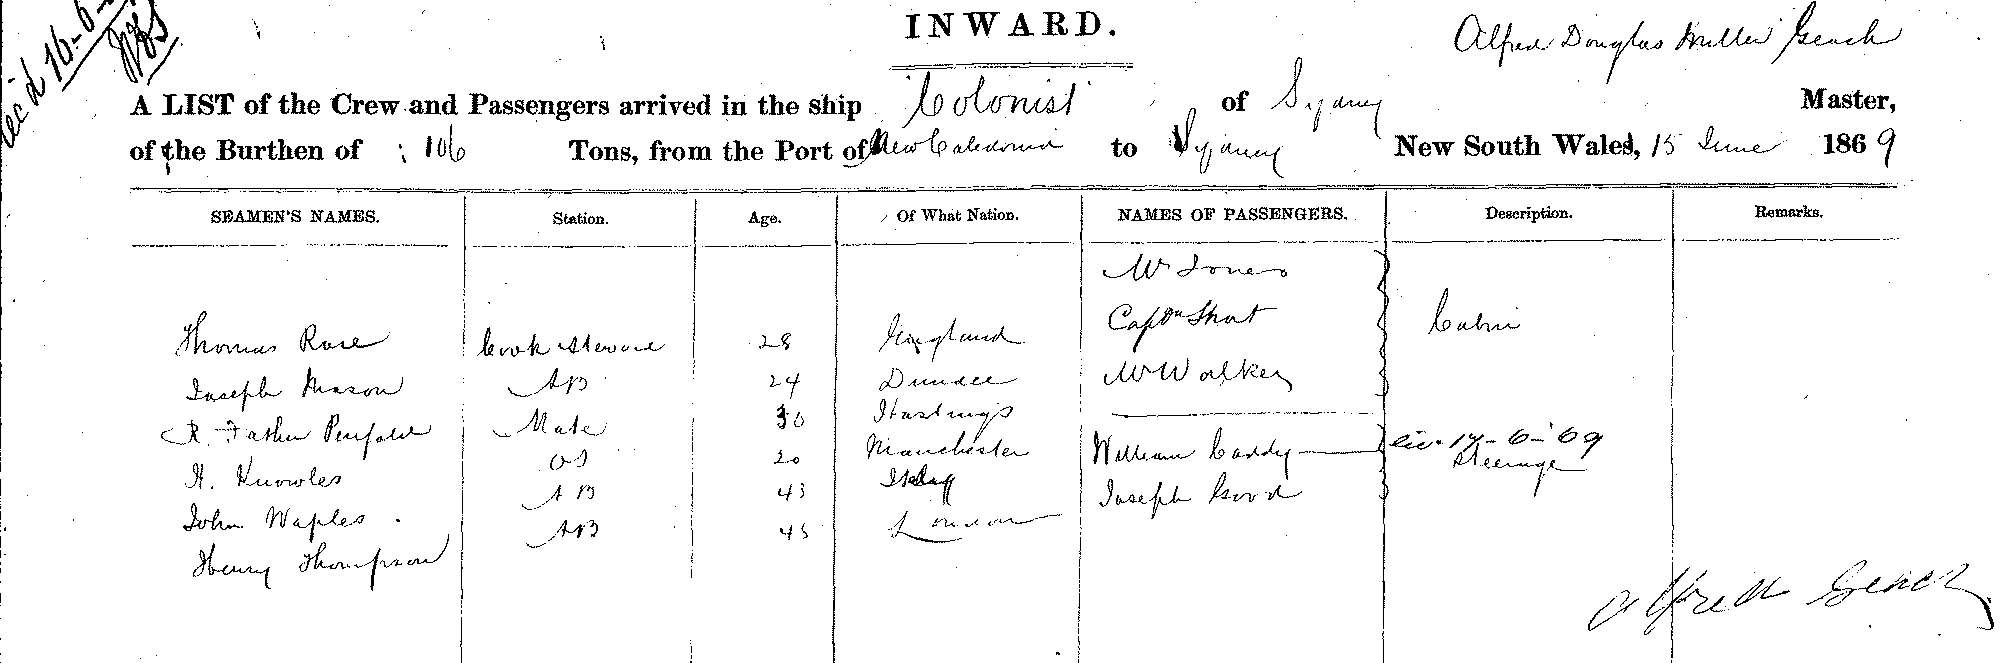 rec'd 16-6-
INWARD.
Alfred Douglas Geach
A LIST of the Crew and Passengers arrived in the ship "Colonist" of Sydney Master,
of the Burthen of 106 Tons, from the Port of New Caledonia to Sydney New South Wales, 15 June 1869
SEAMEN'S NAMES. Station. Age. Of What Nation. NAMES OF PASSENGERS. Description. Remarks.
Mr Jones
Capt. Short Cabin
Thomas Rose Cook Steward 28 England
Joseph Mason AB 24 Dundee Mr Walker
R. Father Penfold Mate 30 Hastings
H. Knowles OS 20 Manchester William Caddy 17-6-69
Steerage
John Waples AB 43 Joseph Good
Henry Thompson AB 45 London
Alfred Geach